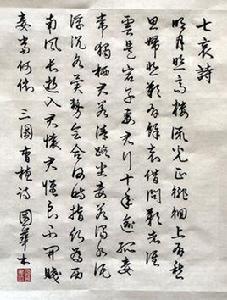 七哀詩
明月照高樓流光正徘徊上有愁
思婦悲歎有餘哀借問歎者誰
雲是宕子妻君行十年逾孤妾
常獨栖君若清路塵妾若濁水泥
浮沉各異勢會合何時諧願爲西
南風長逝入君懷君懷良不開賤
妾當何依 三國曹植詩 國華